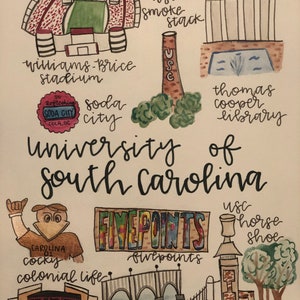 smoke
stack
williams-brice
stadium
USC
thomas
cooper
library
SODA CITY
soda
city
university of
south carolina
CAROLINA
cocky
FIVEPOINTS
fivepoints
usc
horse
shoe
colonial life